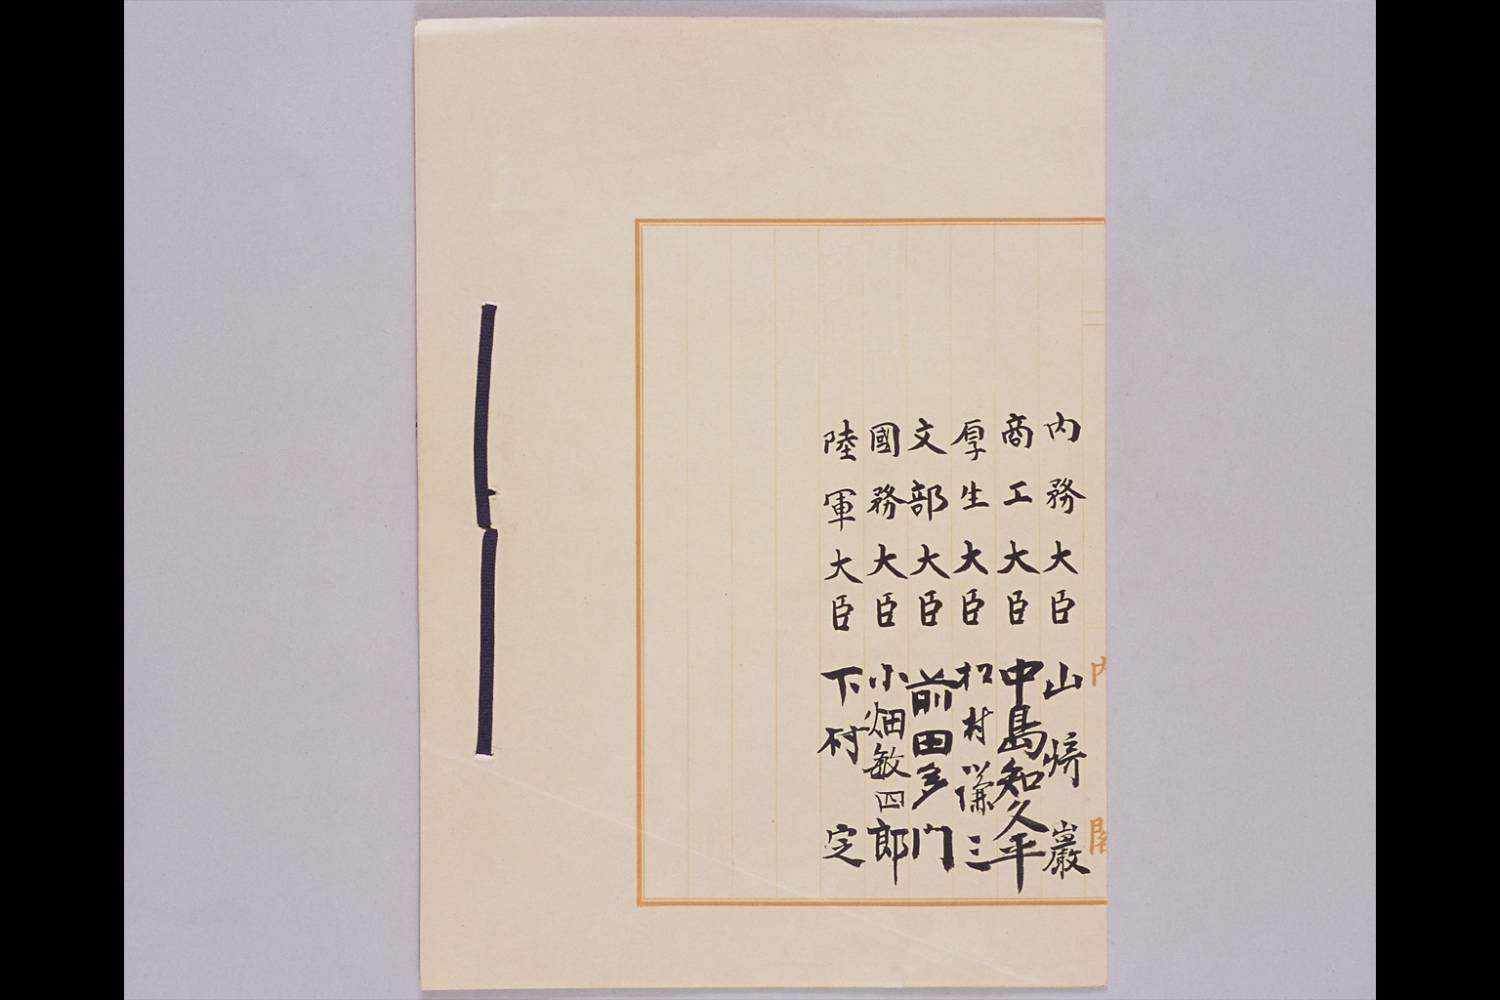 内閣
内務大臣 山﨑巖
商工大臣 中島知久平
厚生大臣 松村謙三
文部大臣 前田多門
國務大臣 小畑敏四郎
陸軍大臣 下村定